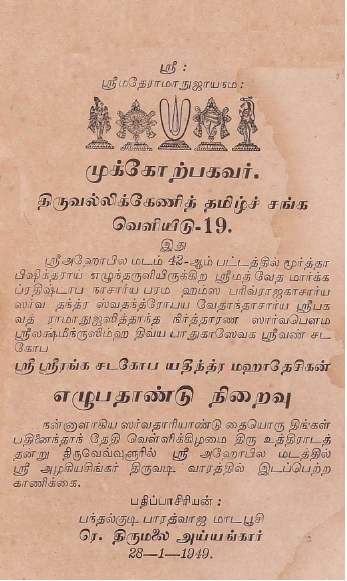 ஸ்ரீ :
ஸ்ரீமதேராமாநுஜாயநம :
முக்கோற்பகவர்.
திருவல்லிக்கேணித் தமிழ்ச் சங்க
வெளியிடு-19.
இது
ஸ்ரீ அஹோபில மடம் 42-ஆம் பட்டத்தில் மூர்த்தா
பிஷிக்தராய் எழுந்தருளியிருக்கிற ஸ்ரீமத் வேத மார்க்க
ப்ரதிஷ்டாப நாசார்ய பரம ஹம்ஸ பரிவ்ராஜகாசார்ய
ஸர்வ தந்த்ர ஸ்வதந்த்ரோபய வேதாந்தாசார்ய ஸ்ரீபக
வத் ராமாநுஜஸித்தாந்த நிர்த்தாரண ஸார்வபெளம
ஸ்ரீலக்ஷ்மீந்ருஸிம்ஹ திவ்ய பாதுகாஸேவக ஸ்ரீவண் சட
கோப
ஸ்ரீ ஸ்ரீரங்க சடகோப யதீந்த்ர மஹாதேசிகன்
எழுபதாண்டு நிறைவு
நன்னாளாகிய ஸர்வதாரியாண்டு தையொரு திங்கள்
பதினைந்தாந் தேதி வெள்ளிக்கிழமை திரு உத்திராடத்
தன்று திருவெவ்வுளூரில் ஸ்ரீ அஹோபில மடத்தில்
ஸ்ரீ அழகியசிங்கர் திருவடி வாரத்தில் இடப்பெற்ற
காணிக்கை.
பதிப்பாசிரியன் :
பந்தல்குடி பாரத்வாஜ மாடபூசி
ரெ. திருமலை அய்யங்கார்
28—1—1949.